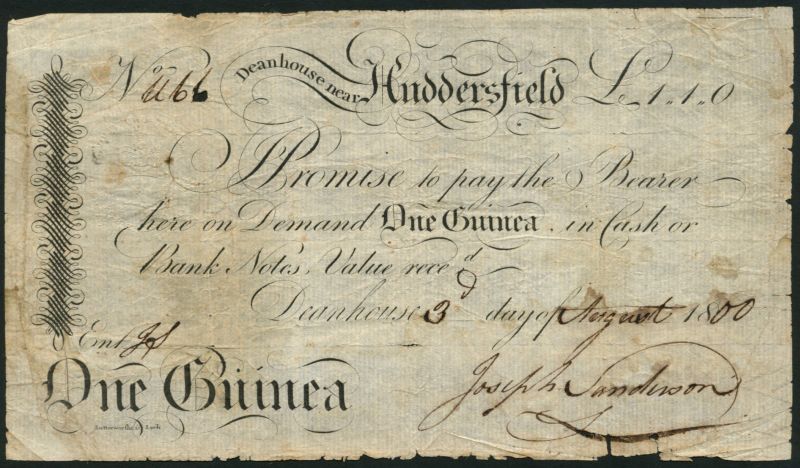 No Deanhouse near Huddersfield £1,,1,,0
I Promise to pay the Bearer
here on Demand One Guinea in Cash or
Bank Notes, Value rece.d
Deanhouse 3d day of August 1800
Ent
Joseph Sanderson
One Guinea